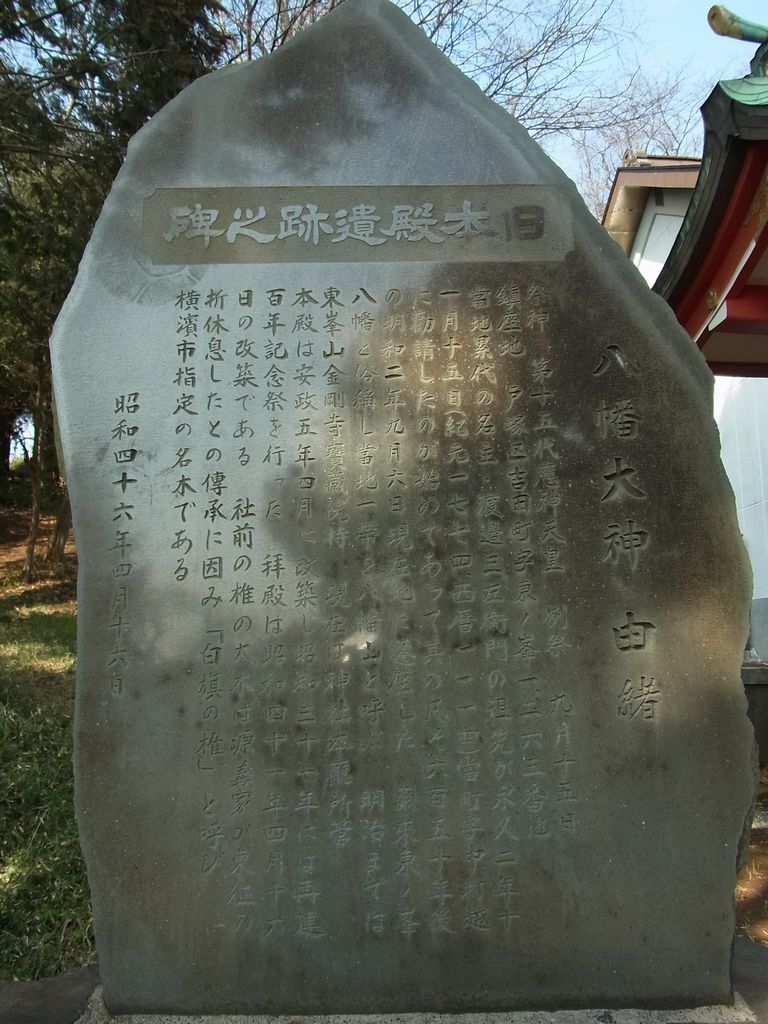 旧本殿遺跡之碑
八幡大神由緒
祭神 第十五代應神天皇 例祭 九月十五日
鎮座地 戸塚区吉田町字東ノ峯一一六三番地
当地累代の名主 渡邉三左衛門の祖先が永久二年十
一月十五日(紀元一七七四西暦一一一四)当町字中村越
に勧請したのが始めであって其の凡そ六百五十年後
の明和二年九月六日現在地に遷座した 爾来東ノ峯
八幡と俗稱し當地一帯を八幡山と呼ぶ 明治までは
東峯山金剛寺寶蔵院持 現在は神社本廳所管
本殿は安政五年四月に改築し昭和三十七年には再建
百年記念祭を行った 拝殿は昭和四十一年四月十六
日の改築である 社前の椎の大木は源義家が東征の
折休息したとの傳承に因み「白旗の椎」と呼び
横濱市指定の名木である
昭和四十六年四月十六日